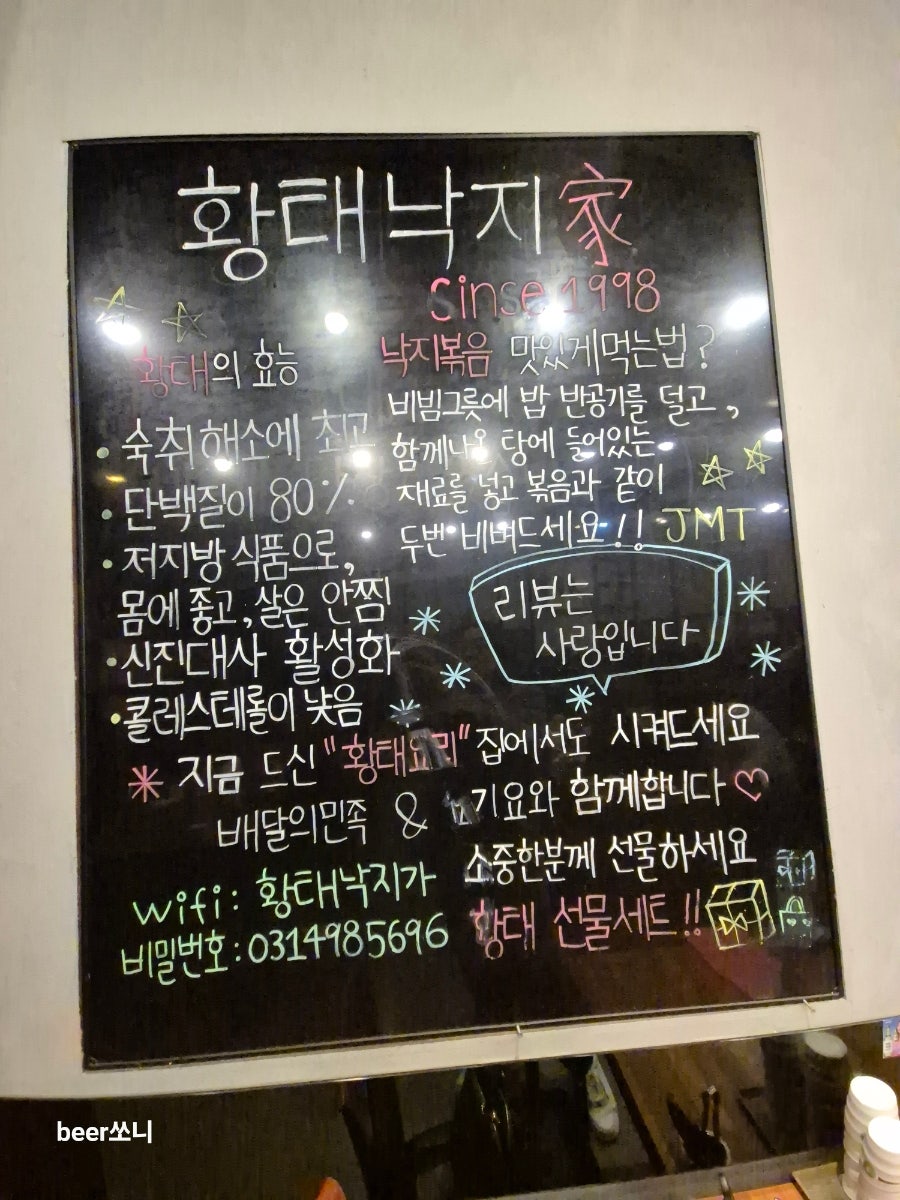 황태낙지家
Sinse 1998
황태의 효능
• 숙취해소에 최고
• 단백질이 80%
• 저지방 식품으로,
몸에 좋고, 살은 안찜
• 신진대사 활성화
• 콜레스테롤이 낮음
낙지볶음 맛있게먹는법?
비빔그릇에 밥 반공기를 덜고,
함께나온 탕에 들어있는
재료를 넣고 볶음과 같이
두번 비벼드세요!! JMT
리뷰는
사랑입니다
지금 드신 "황태요리" 집에서도 시켜드세요
배달의민족 & 기요와 함께합니다
소중한분께 선물하세요
황태 선물세트!!
wifi: 황태낙지가
비밀번호: 0314985696
beer쏘니